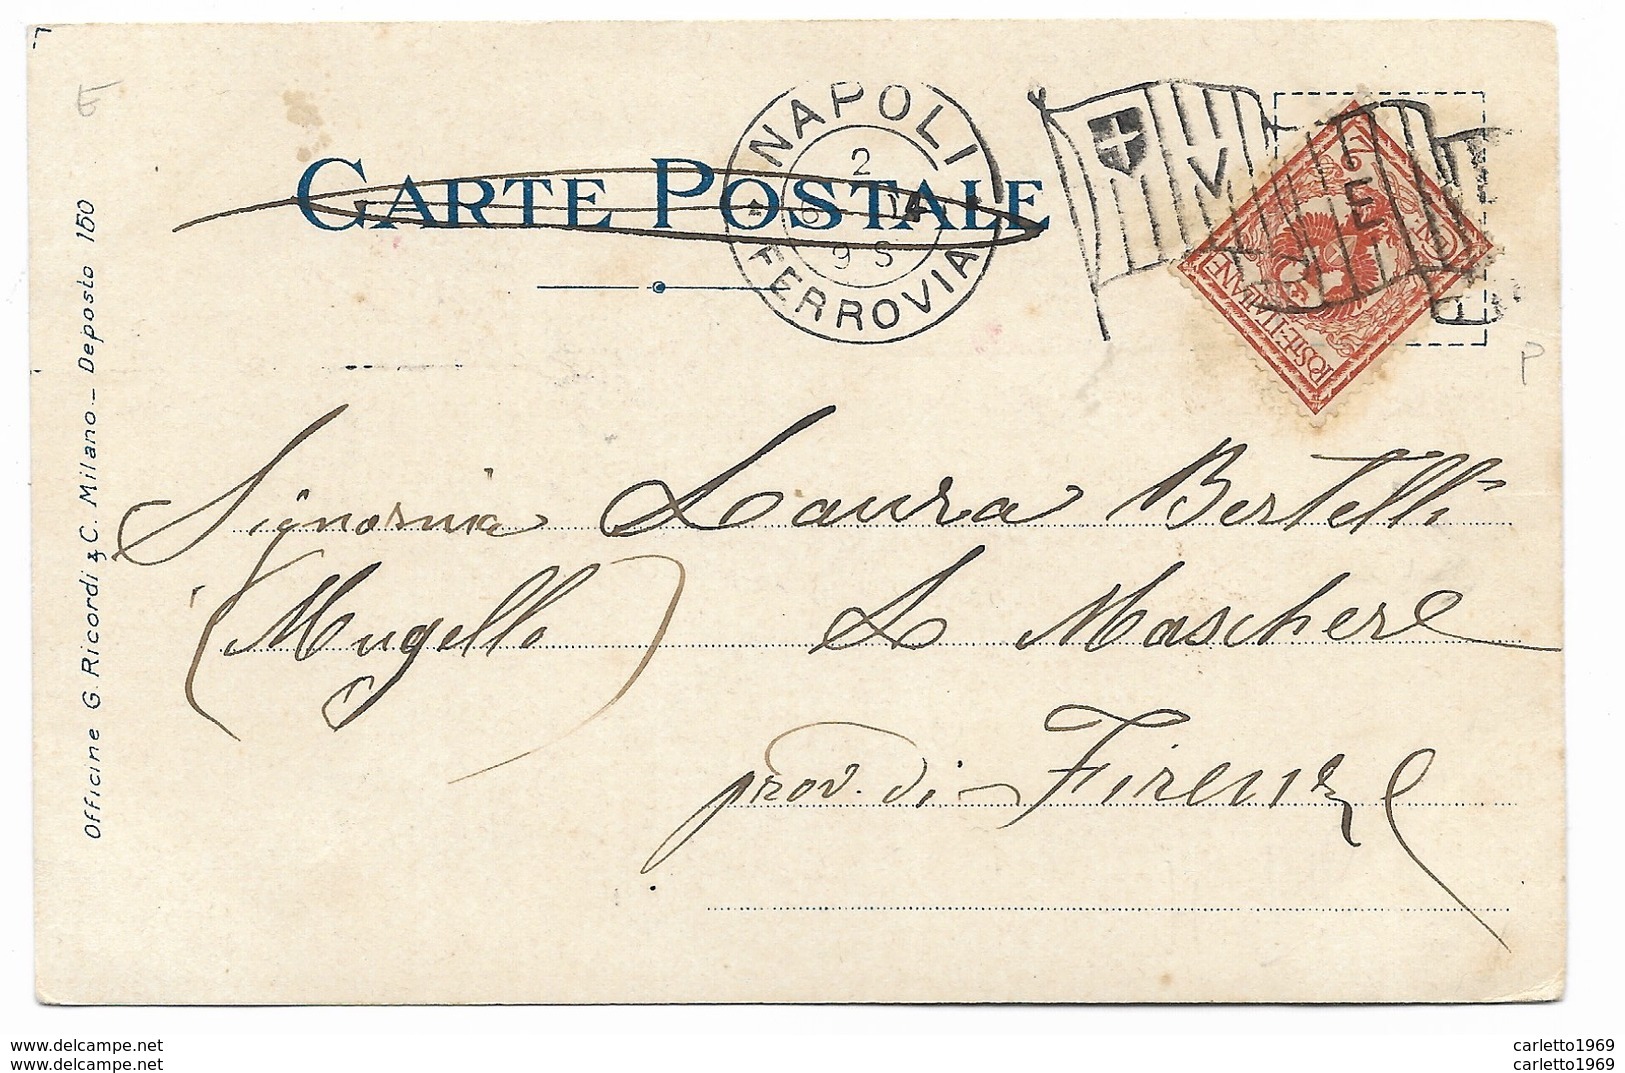 CARTE POSTALE
NAPOLI
2
9 S
FERROVIA
W
IL
RE
POSTE ITALIANE
Officine G. Ricordi & C. Milano - Deposto 150
Signorina Laura Bertelli
(Mugello) Le Maschere
prov. di Firenze
P
carletto1969
carletto1969
www.delcampe.net
www.delcampe.net